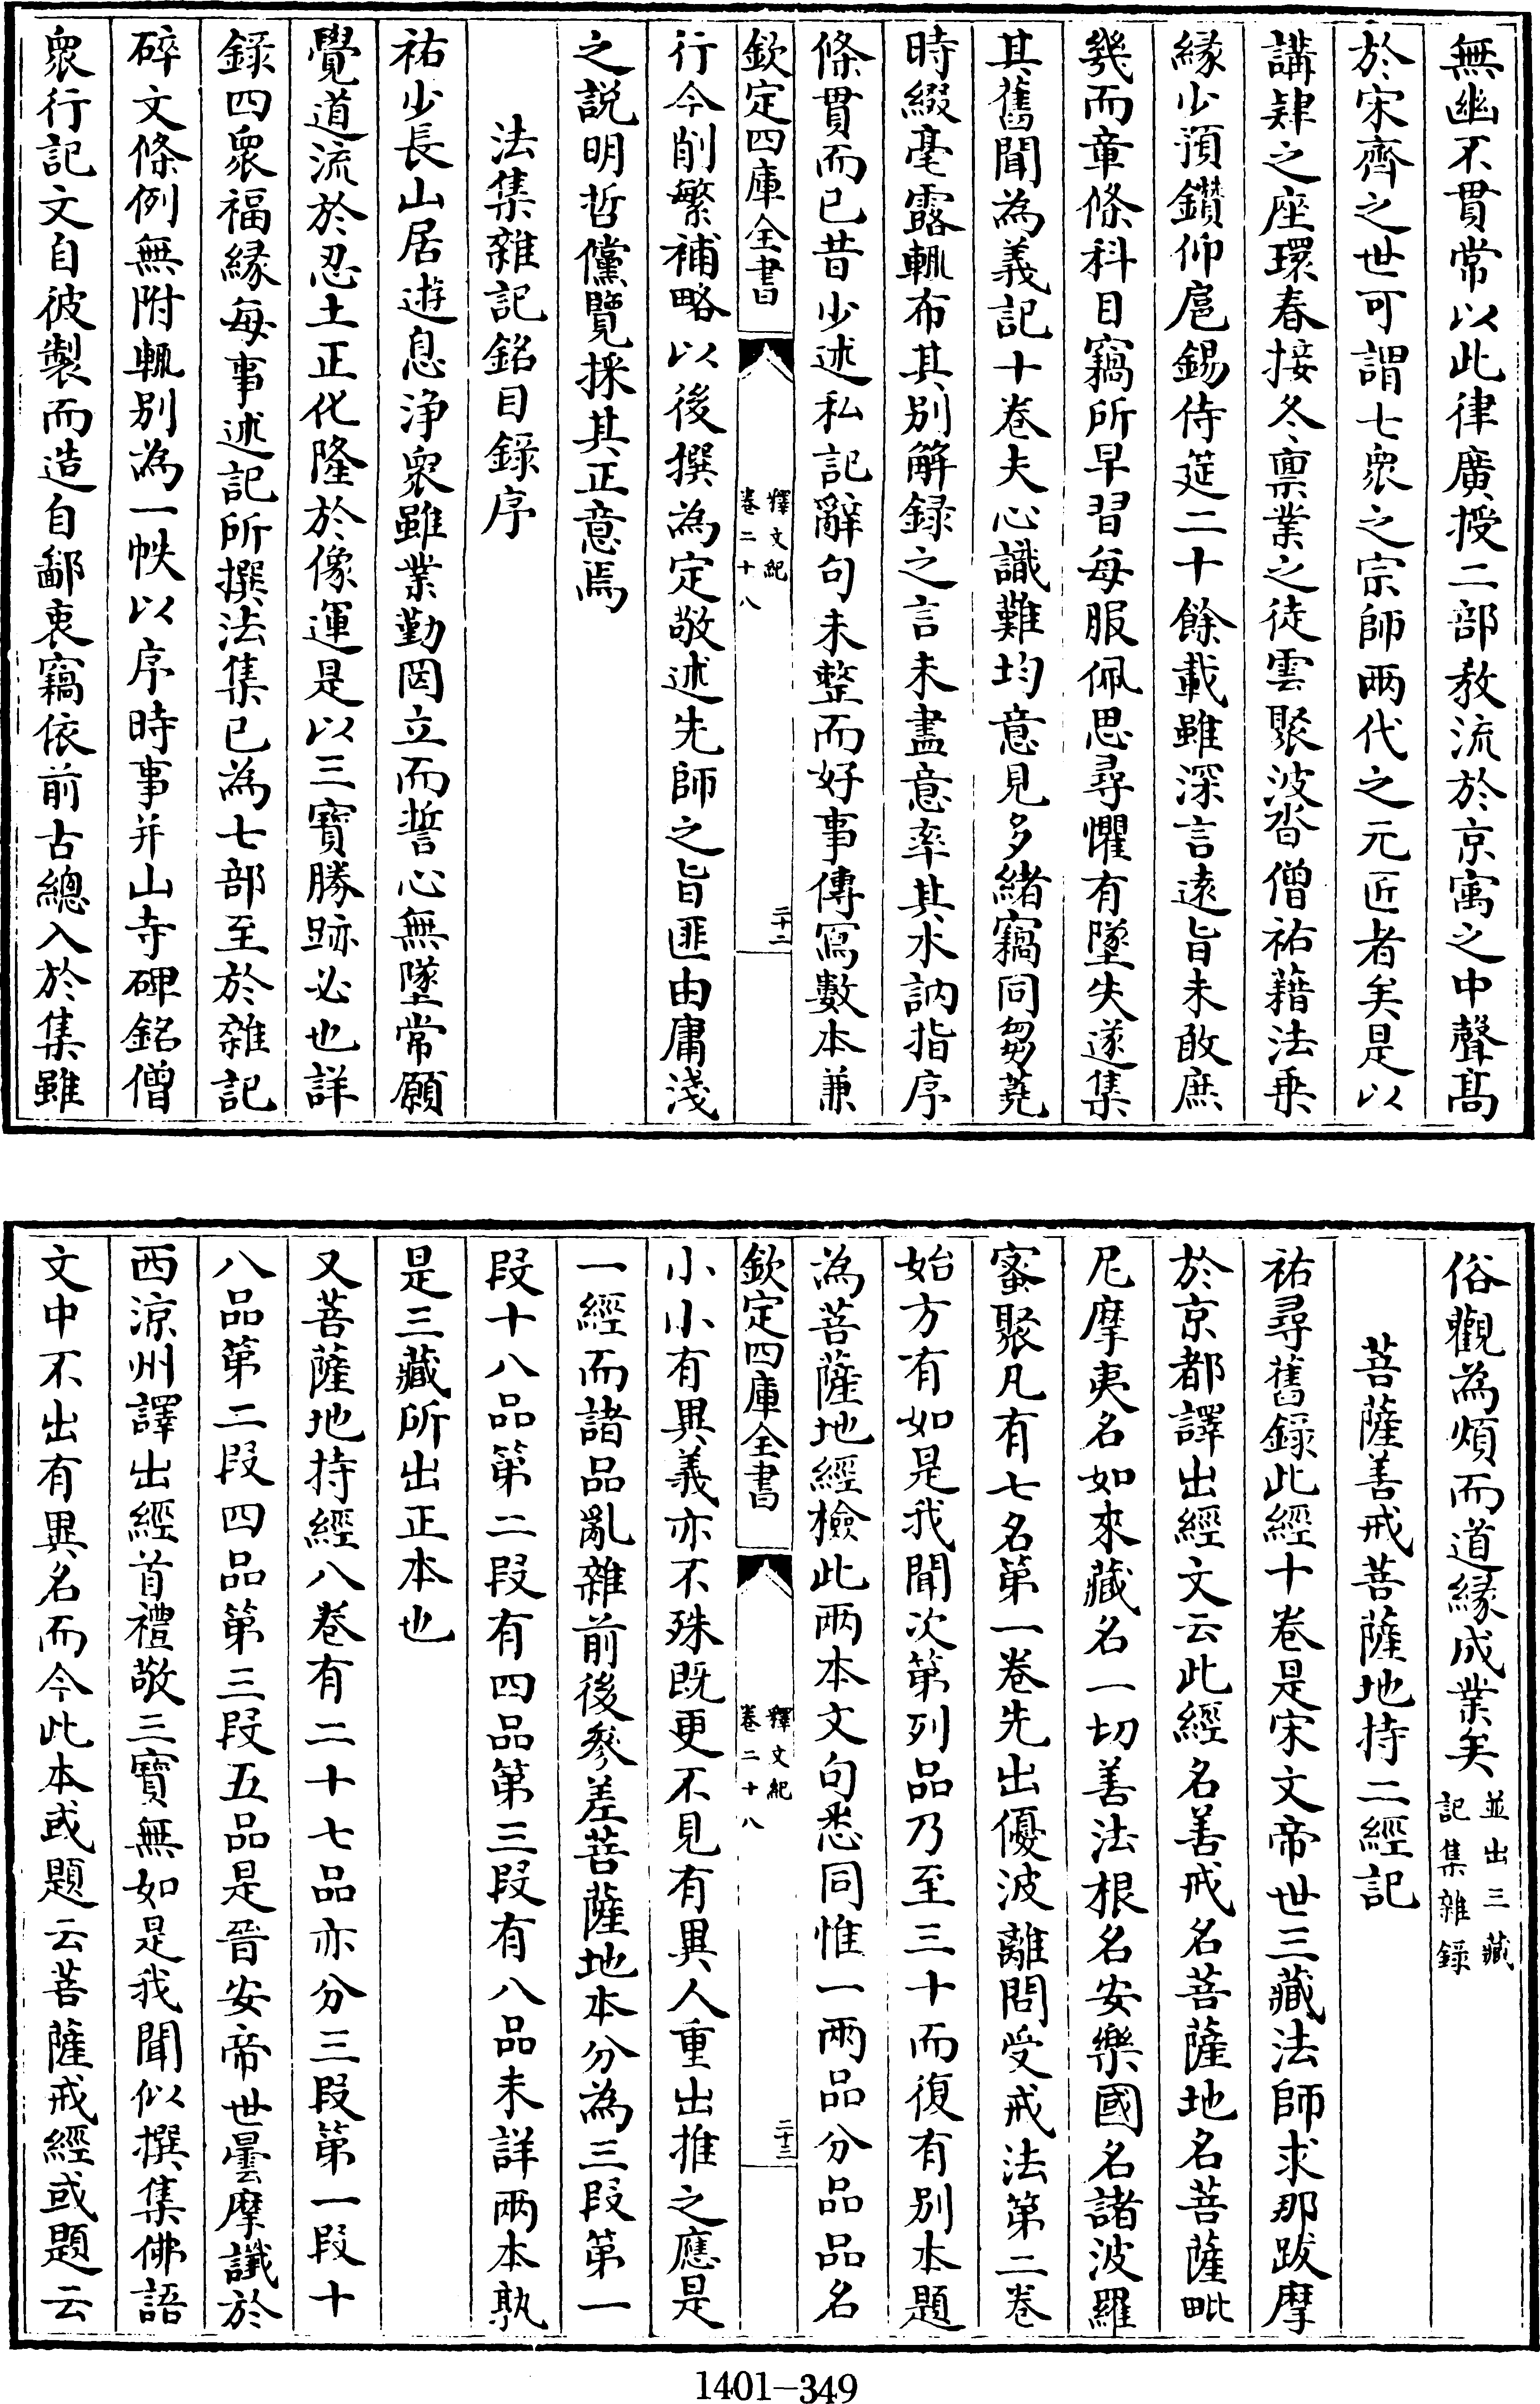 無幽不貫常以此律廣授二部教流於京㝢之中聲髙
於宋齊之世可謂七衆之宗師兩代之元匠者矣是以
講肄之座環春接冬禀業之徒雲聚波沓僧祐藉法乗
緣少預鑽仰扈錫侍筵二十餘載雖深言逺旨未敢庶
幾而章條科目竊所早習每服佩思尋懼有墜失遂集
其舊聞為義記十卷夫心識難均意見多緒竊同芻蕘
時綴毫露輒布其别解録之言未盡意率其氷訥指序
條貫而已昔少述私記辭句未整而好事傳寫數本兼
欽定四庫全書
釋文紀
卷二十八
二十二
行今削繁補略以後撰為定敬述先師之旨匪由庸淺
之説明哲儻覽採其正意焉
法集雜記銘目録序
祐少長山居遊息浄衆雖業勤罔立而誓心無墜常願
覺道流於忍土正化隆於像運是以三寳勝跡必也詳
録四衆福緣每事述記所撰法集已為七部至於雜記
碎文條例無附輒别為一帙以序時事并山寺碑銘僧
衆行記文自彼製而造自鄙衷竊依前古總入於集雖
俗觀為煩而道緣成業矣
並出三藏
記集雜録
菩薩善戒菩薩地持二經記
祐尋舊録此經十卷是宋文帝世三藏法師求那跋摩
於京都譯出經文云此經名善戒名菩薩地名菩薩毗
尼摩夷名如來藏名一切善法根名安樂國名諸波羅
蜜聚凡有七名第一卷先出優波離問受戒法第二卷
始方有如是我聞次第列品乃至三十而復有别本題
為菩薩地經檢此兩本文句悉同惟一兩品分品品名
欽定四庫全書
釋文紀
卷二十八
二十三
小小有異義亦不殊既更不見有異人重出推之應是
一經而諸品亂雜前後參差菩薩地本分為三段第一
段十八品第二段有四品第三段有八品未詳兩本孰
是三藏所出正本也
又菩薩地持經八卷有二十七品亦分三段第一段十
八品第二段四品第三段五品是晉安帝世曇摩讖於
西涼州譯出經首禮敬三寳無如是我聞似撰集佛語
文中不出有異名而今此本或題云菩薩戒經或題云
1401-349